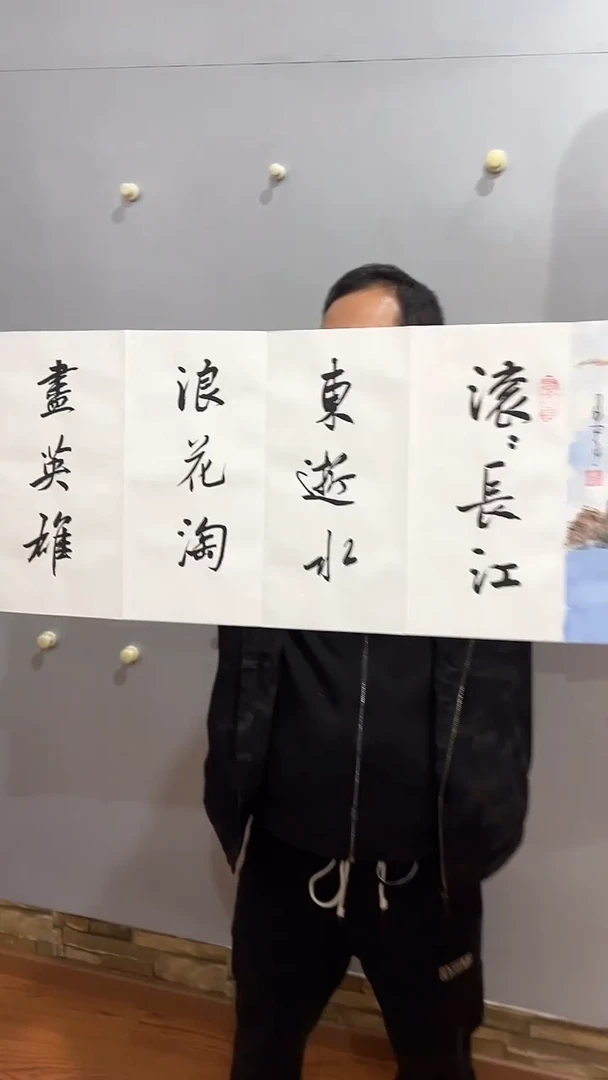 滚〻長江
東逝水
浪花淘
盡英雄